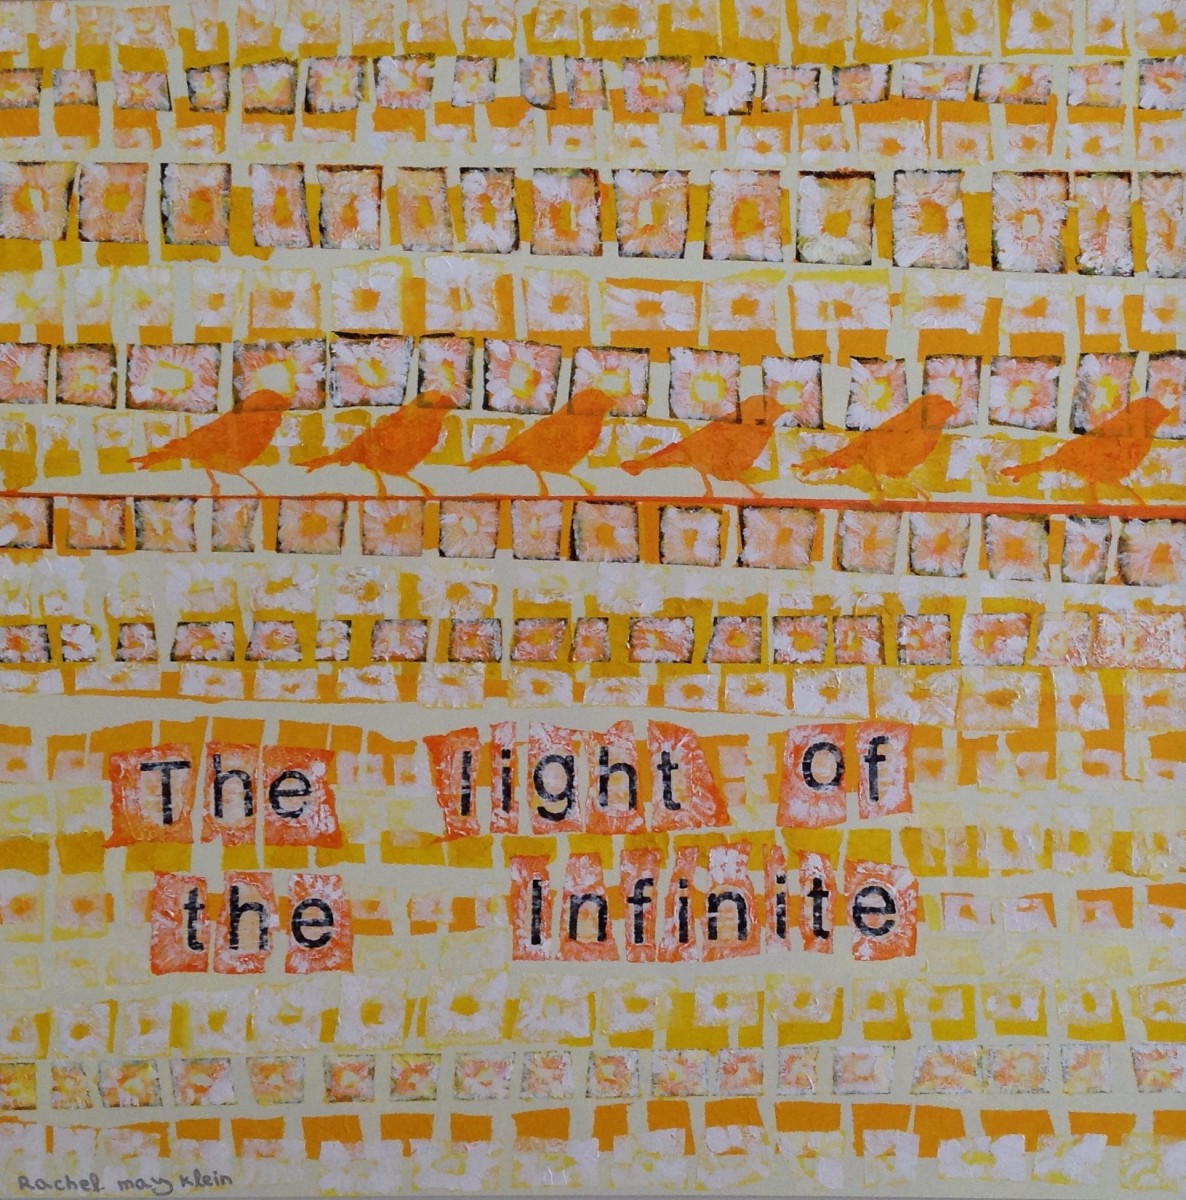 The light of
the Infinite
Rachel may Klein